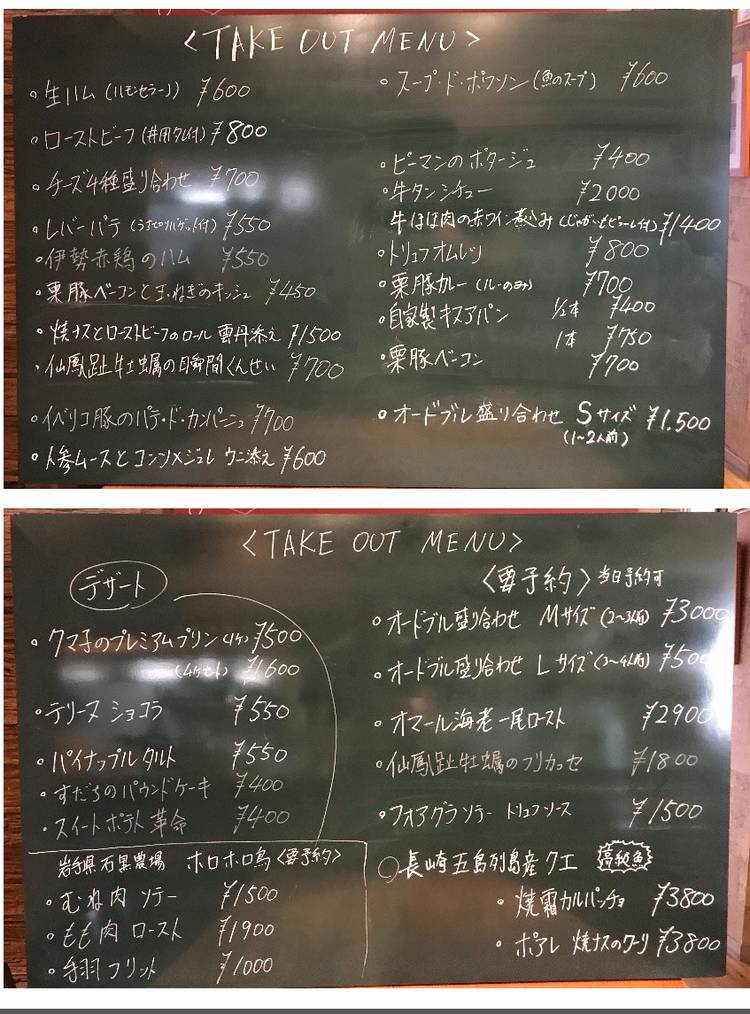 <TAKE OUT MENU>
・生ハム(ハモンセラーノ) ¥600
・ローストビーフ(丼用タレ付) ¥800
・チーズ4種盛り合わせ ¥700
・レバーパテ ¥550
・伊勢赤鶏のハム ¥550
・栗豚ベーコンと玉ねぎのキッシュ ¥450
・焼ナスとローストビーフのロール 雲丹添え ¥1500
・仙鳳趾牡蠣の瞬間くんせい ¥700
・イベリコ豚のパテ・ド・カンパーニュ ¥700
・人参ムースとコンソメジュレ ウニ添え ¥600
・スープ・ド・ポワソン(魚のスープ) ¥600
・ピーマンのポタージュ ¥400
・牛タンシチュー ¥2000
牛ほほ肉の赤ワイン煮込み(じゃがいもピューレ付) ¥1400
・トリュフオムレツ ¥800
・栗豚カレー(ルーのみ) ¥700
・自家製キヌアパン 1/2本 ¥400
1本 ¥750
・栗豚ベーコン ¥700
・オードブル盛り合わせ Sサイズ ¥1,500
(1〜2人前)
<TAKE OUT MENU>
デザート
・クマ子のプレミアムプリン(1ケ) ¥500
(4ケセット) ¥1600
・テリーヌ ショコラ ¥550
・パイナップル タルト ¥550
・すだちのパウンドケーキ ¥400
・スイートポテト 革命 ¥400
岩手県 石黒農場 ホロホロ鳥 <要予約>
・むね肉 ソテー ¥1500
・もも肉 ロースト ¥1900
・手羽 フリット ¥1000
<要予約> 当日予約可
・オードブル盛り合わせ Mサイズ(2〜3人前) ¥3000
・オードブル盛り合わせ Lサイズ(3〜4人前)
・オマール海老 一尾ロースト ¥2900
・仙鳳趾牡蠣のフリカッセ ¥1800
・フォアグラソテー トリュフソース ¥1500
○長崎五島列島産クエ 高級魚
・焼霜カルパッチョ ¥3800
・ポアレ 焼ナスのクーリ ¥3800